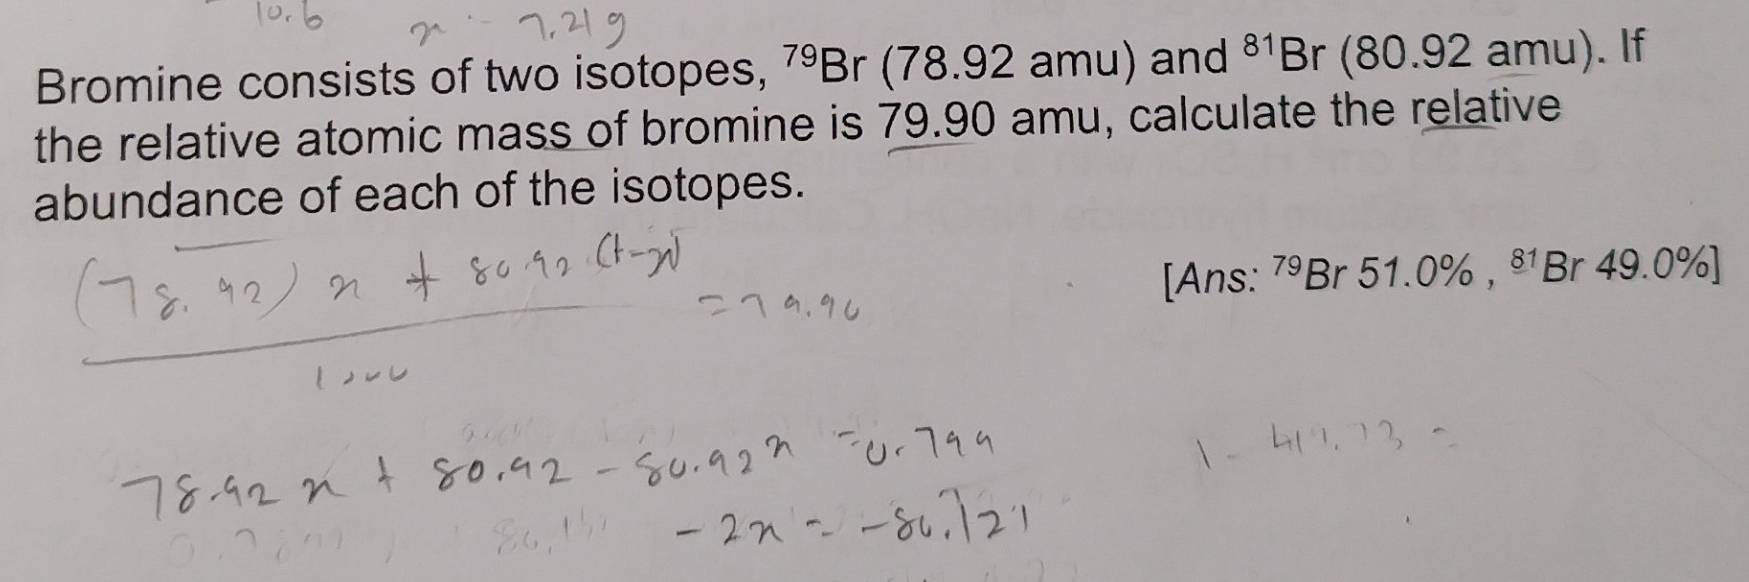 10.6 x 7.21g
Bromine consists of two isotopes, ⁷⁹Br (78.92 amu) and ⁸¹Br (80.92 amu). If
the relative atomic mass of bromine is 79.90 amu, calculate the relative
abundance of each of the isotopes.
(78.92) x + 80.92 (1-x)
= 79.90
[Ans: ⁷⁹Br 51.0% , ⁸¹Br 49.0%]
78.92 x + 80.92 - 80.92 x = 0.799
-2x = -80.121